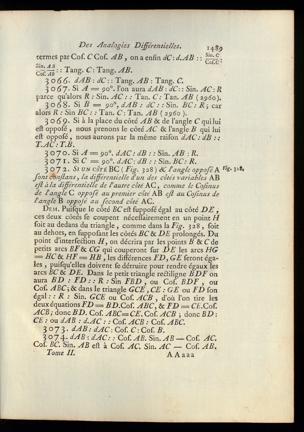 Des Analogies Différentielles. 1489
termes par Cos. C Cos. AB, on a enfin dC : dAB :: Sin. C / Cos. C
Sin. AB / Cos. AB :: Tang. C : Tang. AB.
3066. dAB : dC :: Tang. AB : Tang. C.
3067. Si A = 90°. l'on aura dAB : dC :: Sin. AC : R
parce qu'alors R : Sin. AC :: Tan. C : Tan. AB (2960).
3068. Si B = 90°, dAB : dC :: Sin. BC : R ; car
alors R : Sin BC :: Tan. C : Tan. AB (2960).
3069. Si à la place du côté AB & de l'angle C qui lui
est opposé, nous prenons le côté AC & l'angle B qui lui
est opposé, nous aurons par la même raison dAC : dB ::
T.AC : T.B.
3070. Si A = 90°. dAC : dB :: Sin. AB : R.
3071. Si C = 90°. dAC : dB :: Sin. BC : R.
3072. SI UN CÔTÉ BC (Fig. 328) & l'angle opposé A Fig. 328.
sont constans, la différentielle d'un des côtés variables AB
est à la différentielle de l'autre côté AC, comme le Cosinus
de l'angle C opposé au premier côté AB est au Cosinus de
l'angle B opposé au second côté AC.
DÉM. Puisque le côté BC est supposé égal au côté DE,
ces deux côtés se coupent nécessairement en un point H
soit au dedans du triangle, comme dans la Fig. 328, soit
au dehors, en supposant les côtés BC & DE prolongés. Du
point d'intersection H, on décrira par les points B & C de
petits arcs BF & CG qui couperont sur DE les arcs HG
= HC & HF = HB, les différences FD, GE seront éga-
les, puisqu'elles doivent se détruire pour rendre égaux les
arcs BC & DE. Dans le petit triangle rectiligne BDF on
aura BD : FD :: R : Sin FBD, ou Cos. BDF, ou
Cos. ABC ; & dans le triangle GCE, CE : GE ou FD son
égal :: R : Sin. GCE ou Cos. ACB, d'où l'on tire les
deux équations FD = BD.Cos. ABC, & FD = CE.Cos.
ACB ; donc BD. Cos. ABC = CE. Cos. ACB ; donc BD :
CE : ou dAB : dAC :: Cos. ACB : Cos. ABC.
3073. dAB : dAC : Cos. C : Cos. B.
3074. dAB : dAC :: Cos. AB. Sin. AB — Cos. AC.
Cos. BC. Sin. AB est à Cos. AC. Sin. AC — Cos. AB.
Tome II. A A aaa